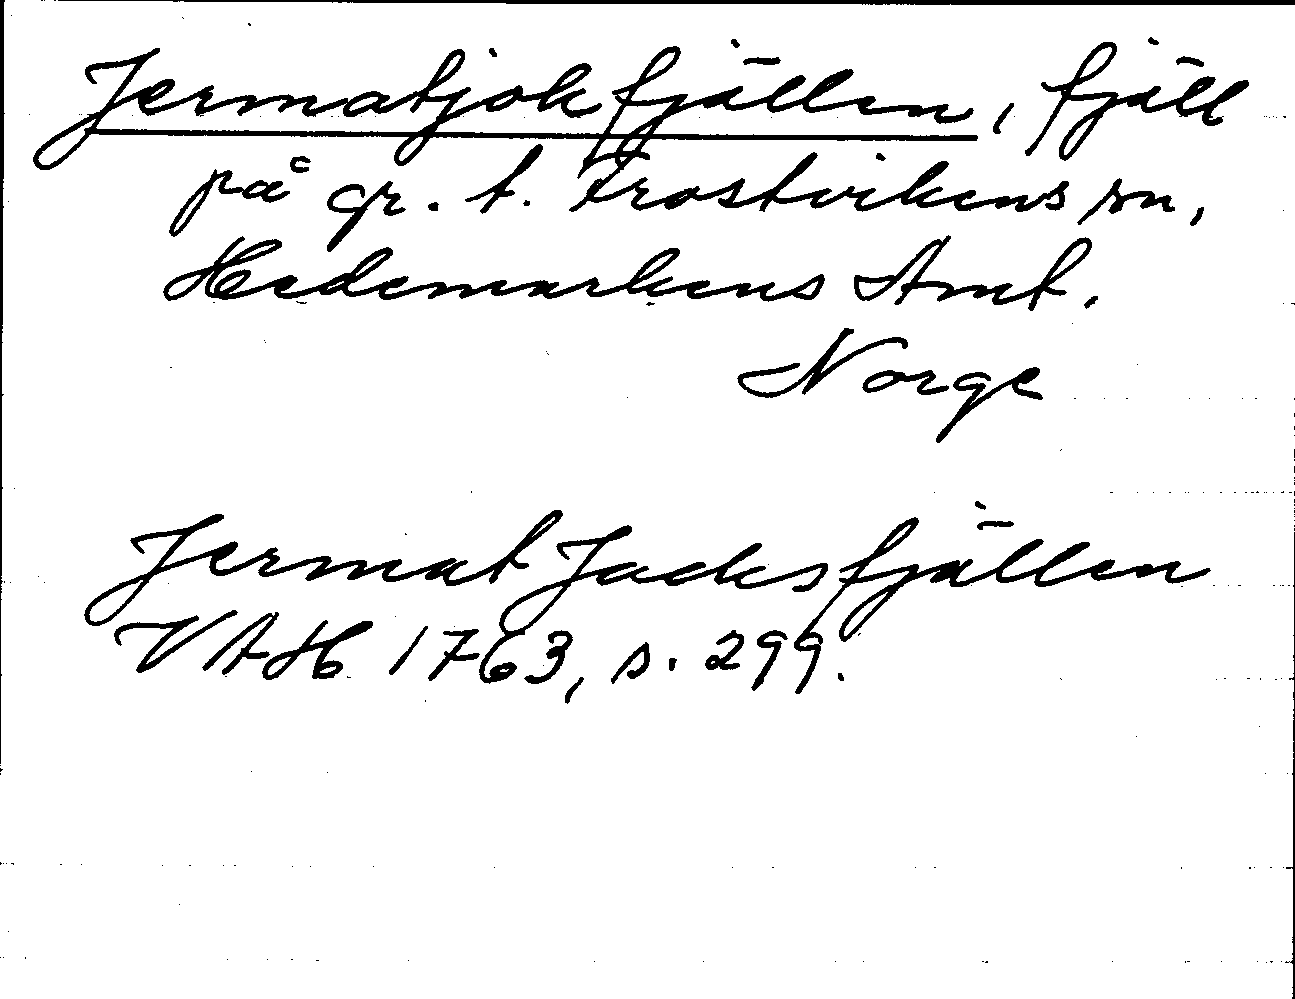 Jermatjokfjällen, fjäll
på gr. t. Frostvikens sn,
Hedemarkens Amt.
Norge
Jermat Jacksfjällen
VAH 1763, s. 299.